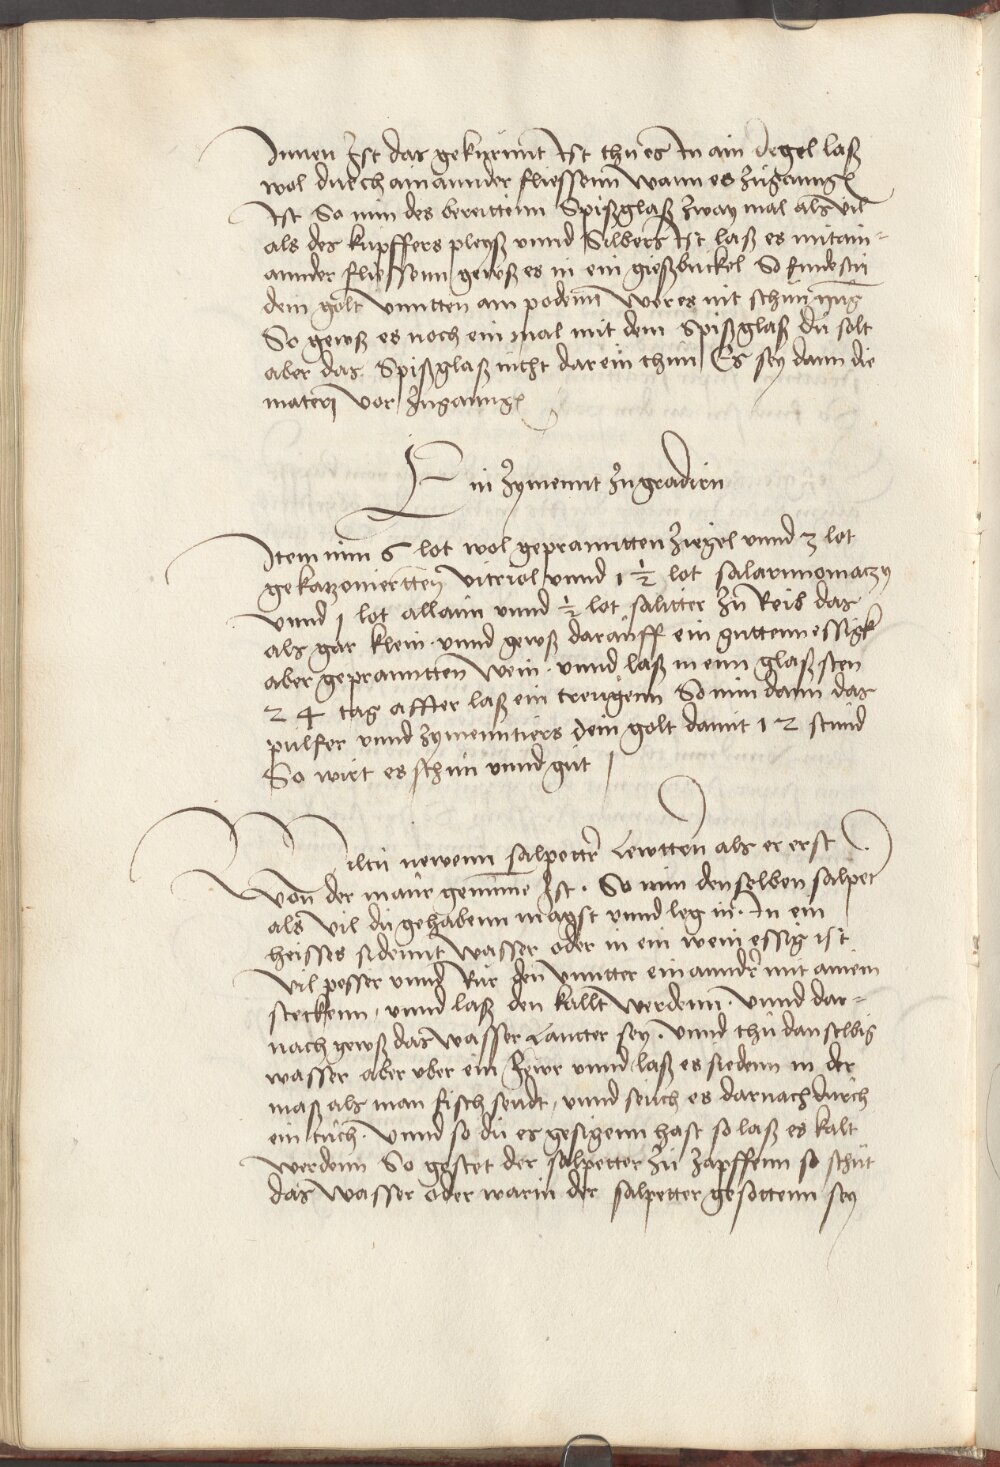 Innen Ist das gekurnnt Ist thu es In ain degel laß
wol durch ainannder fliessenn wann es zugangen
Ist So nim des bereittenn Spißglaß zway mal als vil
als des kupffers pleyß vnnd Silbers Ist laß es mitain-
annder fliessenn geuß es in ein gießbuckel So findestu
dein golt vnntten am podenn wer es nit schon gnug
So geuß es noch ein mal mit dem Spißglaß du solt
aber das Spißglaß nicht darein thun Es sey dann die
materj vor zugangen
Ein zymennt zu gradirn
Item nim 6 lot wol geprannttenn ziegel vnnd 3 lot
gekatzoniertten vitriol vnnd 1 ½ lot salarmoniaczy
vnnd 1 lot allaun vnnd ½ lot saliter zu Reib das
als gar klein vnnd geuß darauff ein guttenn essigk
aber geprannttenn wein vnnd laß in eim glaß sten
24 tag affter laß ein treugenn So nim dann das
pulfer vnnd zymenntiers dein golt damit 12 stund
So wirt es schon vnnd gut
Wiltu newenn salpetter Lewttern als er erst
von der maur genumen Ist. So nim denselben salpeter
als vil du gehabenn magst vnnd leg in. In ein
heisses sidennt wasser oder in ein wein essig ist
vil pesser vnnd Rur den vnntter einannder mit ainem
steckenn, vnnd laß den kallt werdenn. vnnd dar-
nach geuß das wasser Lautter sey. vnnd thu dan selbig
wasser aber vber ein fewr vnnd laß es siedenn in der
maß als man fisch seudt, vnnd seuch es darnach durch
ein tuch. vnnd so du es gesigenn hast so laß es kalt
werdenn So gestet der salpetter zu zapffenn so schut
das wasser oder warin der salpetter gesottenn sey